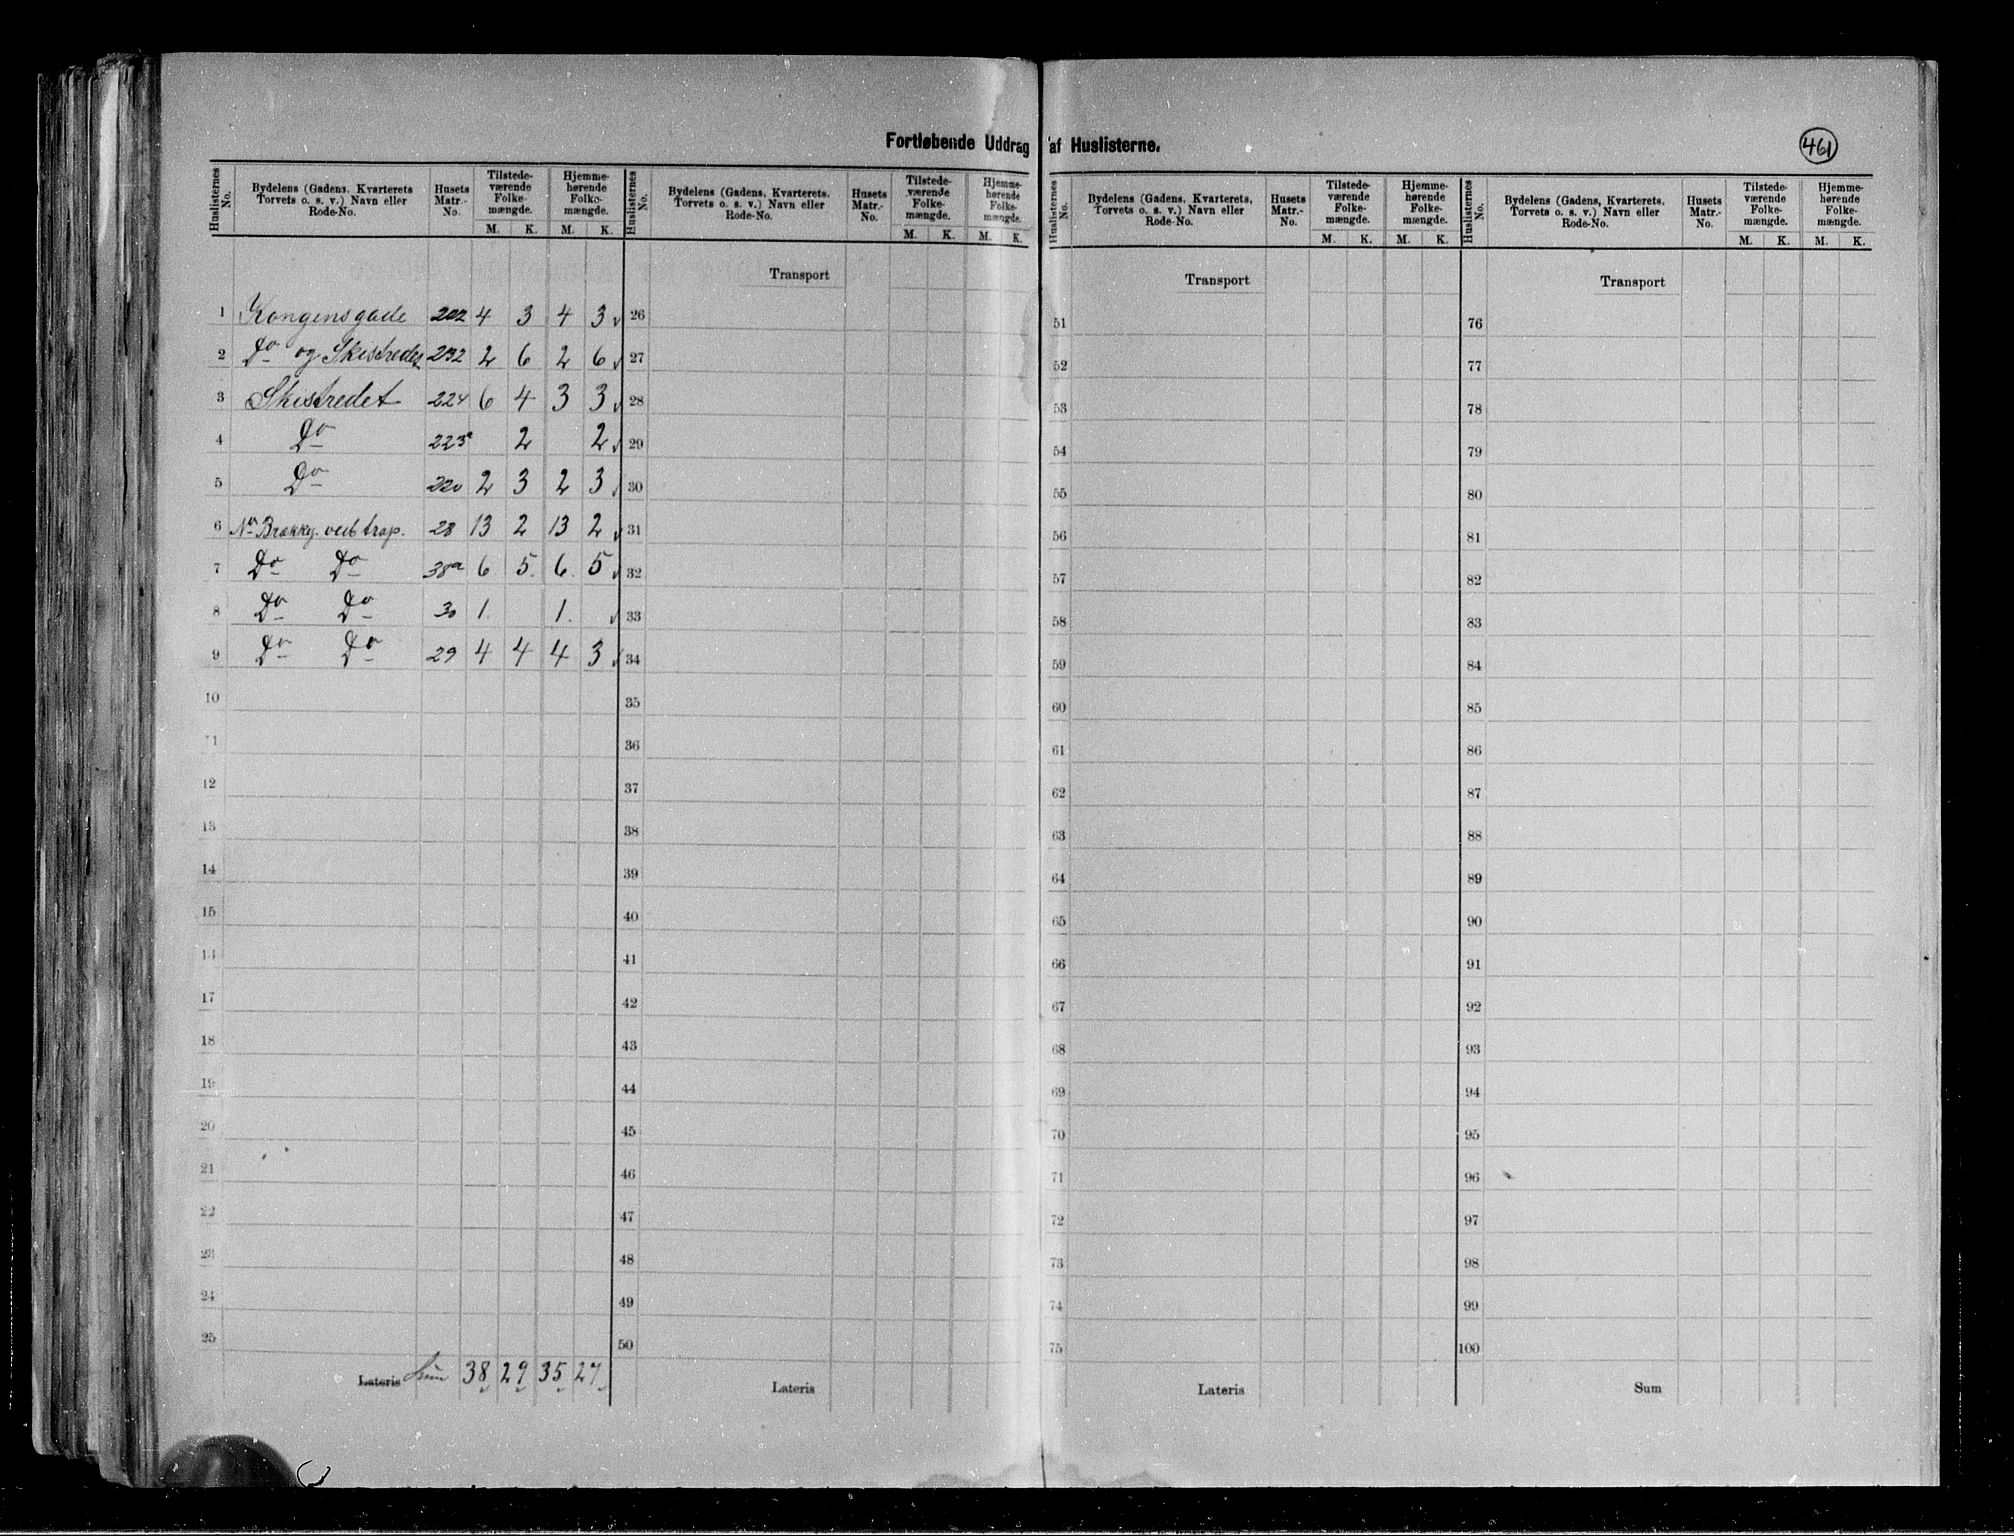 Fortløbende Uddrag af Huslisterne.
461
Huslisternes No. | Bydelens (Gadens, Kvarterets Torvets o. s. v.) Navn eller Rode-No. | Husets Matr.-No. | Tilstedeværende Folkemængde. M. K. | Hjemmehørende Folkemængde. M. K.
1 Kongensgade 202 4 3 4 3
2 Do og Skistredet 232 2 6 2 6
3 Skistredet 224 6 4 3 3
4 Do 223a 2 2
5 Do 220 2 3 2 3
6 No Brækkg. vestrap. 28 13 2 13 2
7 Do Do 38a 6 5 6 5
8 Do Do 30 1 1
9 Do Do 29 4 4 4 3
10
11
12
13
14
15
17
18
19
20
21
22
23
24
25
Lateris Sum 38 29 35 27
Huslisternes No. | Bydelens (Gadens, Kvarterets, Torvets o. s. v.) Navn eller Rode-No. | Husets Matr.-No. | Tilstedeværende Folkemængde. M. K. | Hjemmehørende Folkemængde. M. K.
Transport
26
27
28
29
30
31
32
33
34
35
36
37
38
39
40
41
42
43
44
45
46
47
48
49
50
Lateris
Huslisternes No. | Bydelens (Gadens, Kvarterets, Torvets o. s. v.) Navn eller Rode-No. | Husets Matr.-No. | Tilstedeværende Folkemængde. M. K. | Hjemmehørende Folkemængde. M. K.
Transport
51
52
53
54
55
56
57
58
59
60
61
62
63
64
65
66
67
68
69
70
71
72
73
74
75
Lateris
Huslisternes No. | Bydelens (Gadens, Kvarterets, Torvets o. s. v.) Navn eller Rode-No. | Husets Matr.-No. | Tilstedeværende Folkemængde. M. K. | Hjemmehørende Folkemængde. M. K.
Transport
76
77
78
79
80
81
82
83
84
85
86
87
88
89
90
91
92
93
94
95
96
97
98
99
100
Sum